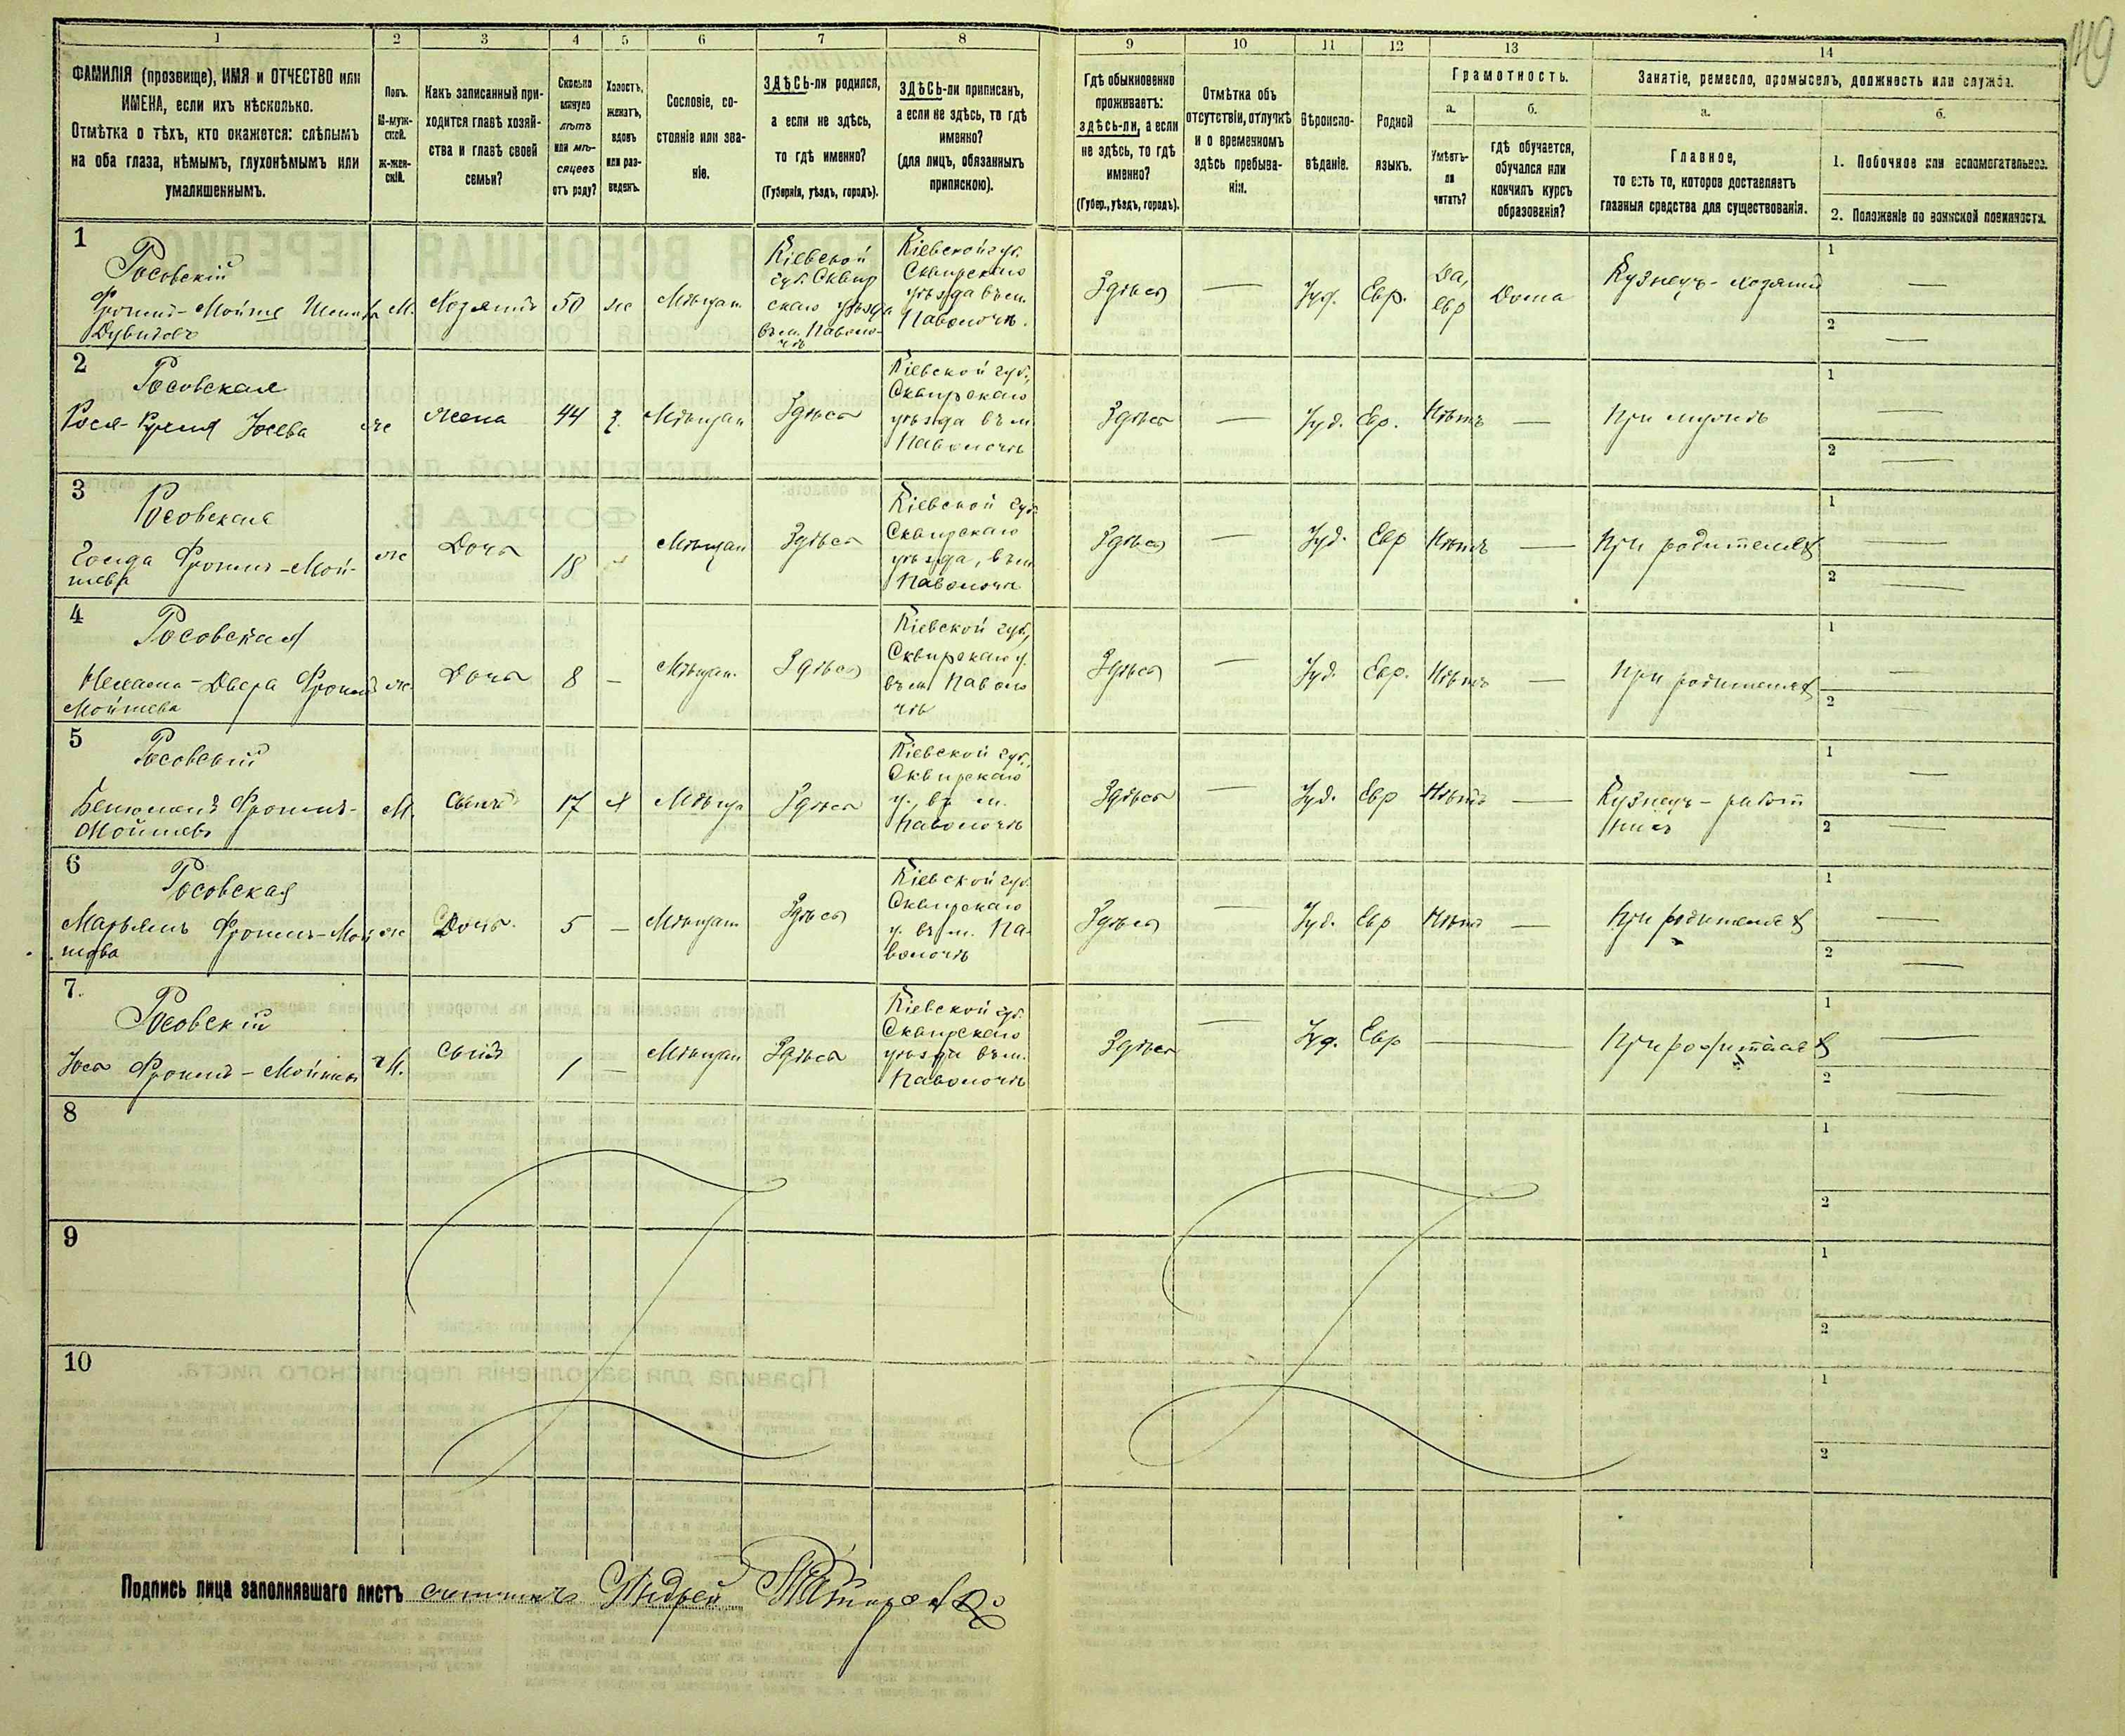 149
1 2 3 4 5 6 7 8 9 10 11 12 13 14
ФАМИЛІЯ (прозвище), ИМЯ и ОТЧЕСТВО или
ИМЕНА, если ихъ нѣсколько.
Отмѣтка о тѣхъ, кто окажется: слѣпымъ
на оба глаза, нѣмымъ, глухонѣмымъ или
умалишеннымъ.
Полъ.
М-муж-
ской.
ж-жен-
скій.
Какъ записанный при-
ходится главѣ хозяй-
ства и главѣ своей
семьи?
Сколько
минуло
лѣтъ
или мѣ-
сяцевъ
отъ роду?
Холостъ,
женатъ,
вдовъ
или раз-
веденъ.
Сословіе, со-
стояніе или зва-
ніе.
ЗДѢСЬ-ли родился,
а если не здѣсь,
то гдѣ именно?
(Губернія, уѣздъ, городъ).
ЗДѢСЬ-ли приписанъ,
а если не здѣсь, то гдѣ
именно?
(для лицъ, обязанныхъ
припискою).
Гдѣ обыкновенно
проживаетъ:
здѣсь-ли, а если
не здѣсь, то гдѣ
именно?
(Губер., уѣздъ, городъ).
Отмѣтка объ
отсутствіи, отлучкѣ
и о временномъ
здѣсь пребыва-
ніи.
Вѣроиспо-
вѣданіе.
Родной
языкъ.
Грамотность.
а.
Умѣетъ-
ли
читать?
б.
гдѣ обучается,
обучался или
кончилъ курсъ
образованія?
Занятіе, ремесло, промыселъ, должность или служба.
а.
Главное,
то есть то, которое доставляетъ
главныя средства для существованія.
б.
1. Побочное или вспомогательное.
2. Положеніе по воинской повинности.
1
Росовскій
Фроимъ-Мойше
Дувидовъ
М.
Хозяинъ
50
ж
Мѣщан
Кіевской
губ. Сквир
скаго уѣзда
въ м. Паволо-
чѣ
Кіевской губ.
Сквирскаго
уѣзда въ м.
Паволочѣ.
Здѣсь
—
Іуд.
Евр.
Да,
евр
Дома
Кузнецъ-хозяинъ
1 —
2 —
2
Росовская
Рося-Рухля Іосева
ж
Жена
44
З.
Мѣщан
Здѣсь
Кіевской губ.,
Сквирскаго
уѣзда въ м
Паволочѣ
Здѣсь
—
Іуд.
Евр.
Нѣтъ
—
При мужѣ
1 —
2 —
3
Росовская
Голда Фроимъ-Мой-
шева
ж
Дочь
18
Мѣщан
Здѣсь
Кіевской губ.
Сквирскаго
уѣзда, въ м
Паволочѣ
Здѣсь
—
Іуд.
Евр
Нѣтъ
—
При родителях
1 —
2 —
4
Росовская
Нехама-Двера Фроимъ
Мойшева
ж.
Дочь
8
—
Мѣщан.
Здѣсь
Кіевской губ.,
Сквирскаго у.
въ м. Паволо
чѣ
Здѣсь
—
Іуд.
Евр.
Нѣтъ
—
При родителях
1 —
2 —
5
Росовскій
Бенюменъ Фроимъ-
Мойшевъ
М.
Сынъ
17
Х
Мѣща
Здѣсь
Кіевской губ.,
Сквирскаго
у., въ м.
Паволочѣ
Здѣсь
—
Іуд.
Евр
Нѣтъ
—
Кузнецъ-работ
никъ
1 —
2 —
6
Росовская
Марьямъ Фроимъ-Мой
шева
ж
Дочь.
5
—
Мѣщан
Здѣсь
Кіевской губ.
Сквирскаго
у. въ м. Па-
волочѣ
Здѣсь
—
Іуд.
Евр
Нѣтъ
—
При родителях
1 —
2 —
7.
Росовскій
Фроимъ-Мойшев
М.
Сынъ
1
—
Мѣщан
Здѣсь
Кіевской губ.
Сквирскаго
уѣзда въ м.
Паволочѣ
Здѣсь
—
Іуд.
Евр
—
При родителях
1 —
2 —
8
1
2
9
1
2
10
1
2
Подпись лица заполнявшаго листъ счетчикъ Андрей